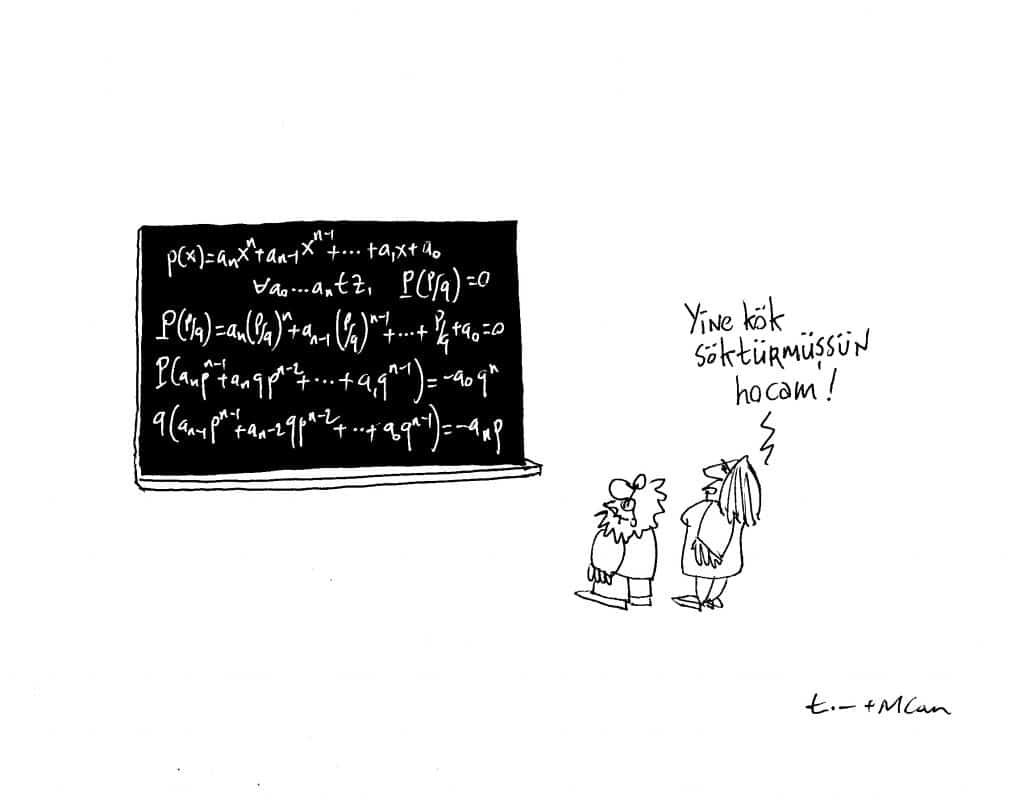 p(x)=aₙxⁿ+aₙ₋₁xⁿ⁻¹+...+a₁x+a₀
∀a₀...aₙ∈Z, P(P/q)=0
P(P/q)=aₙ(P/q)ⁿ+aₙ₋₁(P/q)ⁿ⁻¹+...+P/q+a₀=0
P(aₙpⁿ⁻¹+aₙqpⁿ⁻²+...+a₁qⁿ⁻¹)=-a₀qⁿ
q(aₙ₋₁pⁿ⁻¹+aₙ₋₂qpⁿ⁻²+...+a₀qⁿ⁻¹)=-aₙp
Yine kök
söktürmüşsün
hocam!